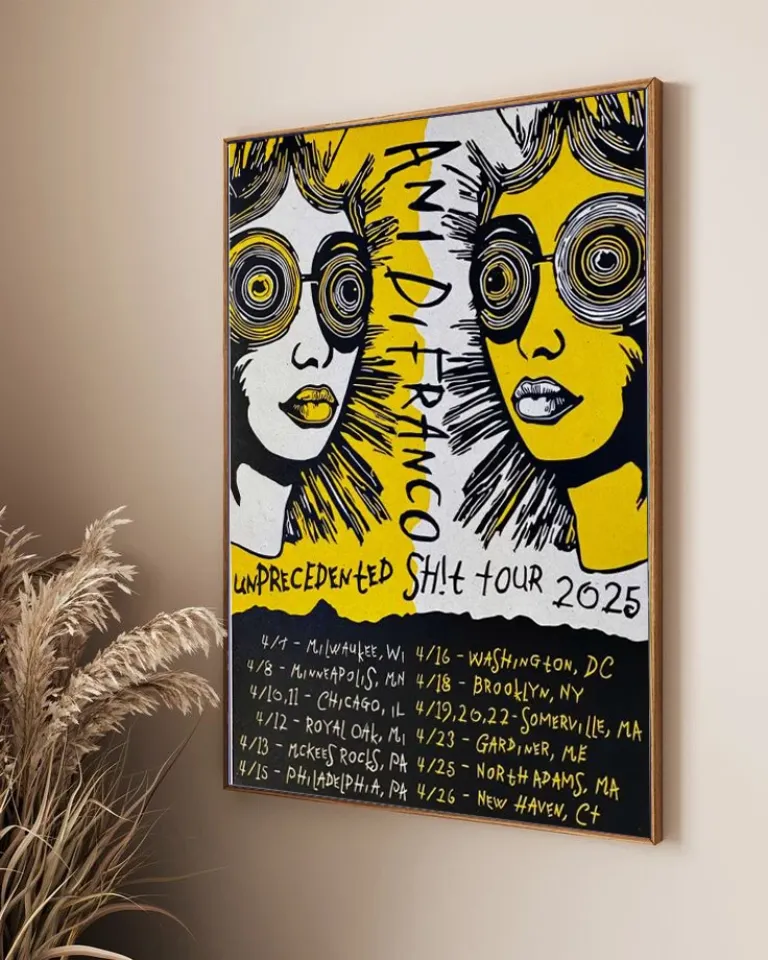 ANI DIFRANCO
UNPRECEDENTED SH!T TOUR 2025
4/7 - MILWAUKEE, WI
4/8 - MINNEAPOLIS, MN
4/10,11 - CHICAGO, IL
4/12 - ROYAL OAK, MI
4/13 - MCKEES ROCKS, PA
4/15 - PHILADELPHIA, PA
4/16 - WASHINGTON, DC
4/18 - BROOKLYN, NY
4/19,20,22 - SOMERVILLE, MA
4/23 - GARDINER, ME
4/25 - NORTH ADAMS, MA
4/26 - NEW HAVEN, CT